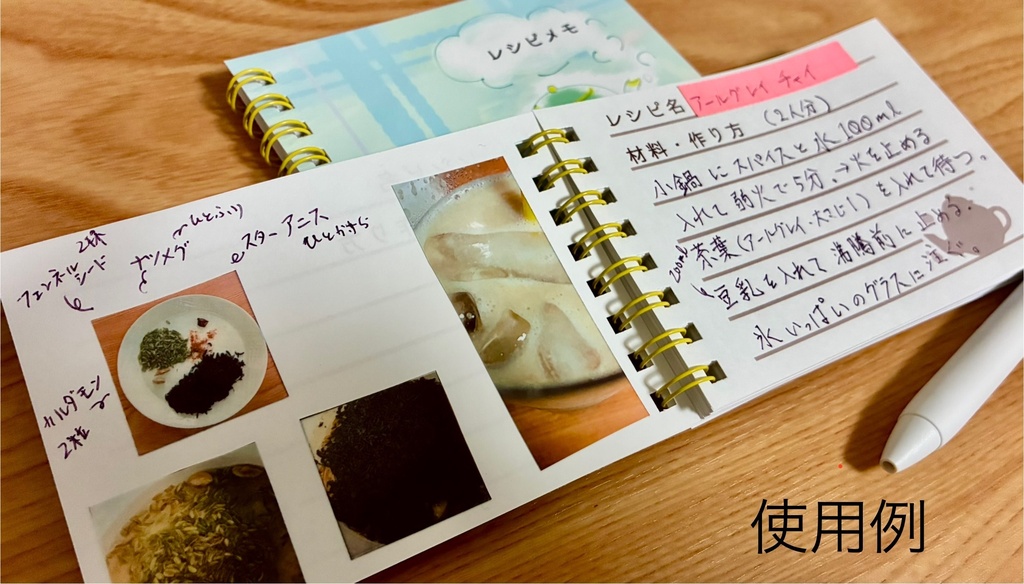 レシピメモ
レシピ名 アールグレイ チャイ
材料・作り方 (2人分)
小鍋にスパイスと水100ml
入れて弱火で5分。→火を止める
茶葉(アールグレイ・大さじ1)を入れて待つ。
200ml
豆乳を入れて沸騰前に止める。
氷いっぱいのグラスに注ぐ。
フェンネル
シード
ナツメグ
ひとふり
スターアニス
ひとかけら
カルダモン
2粒
使用例